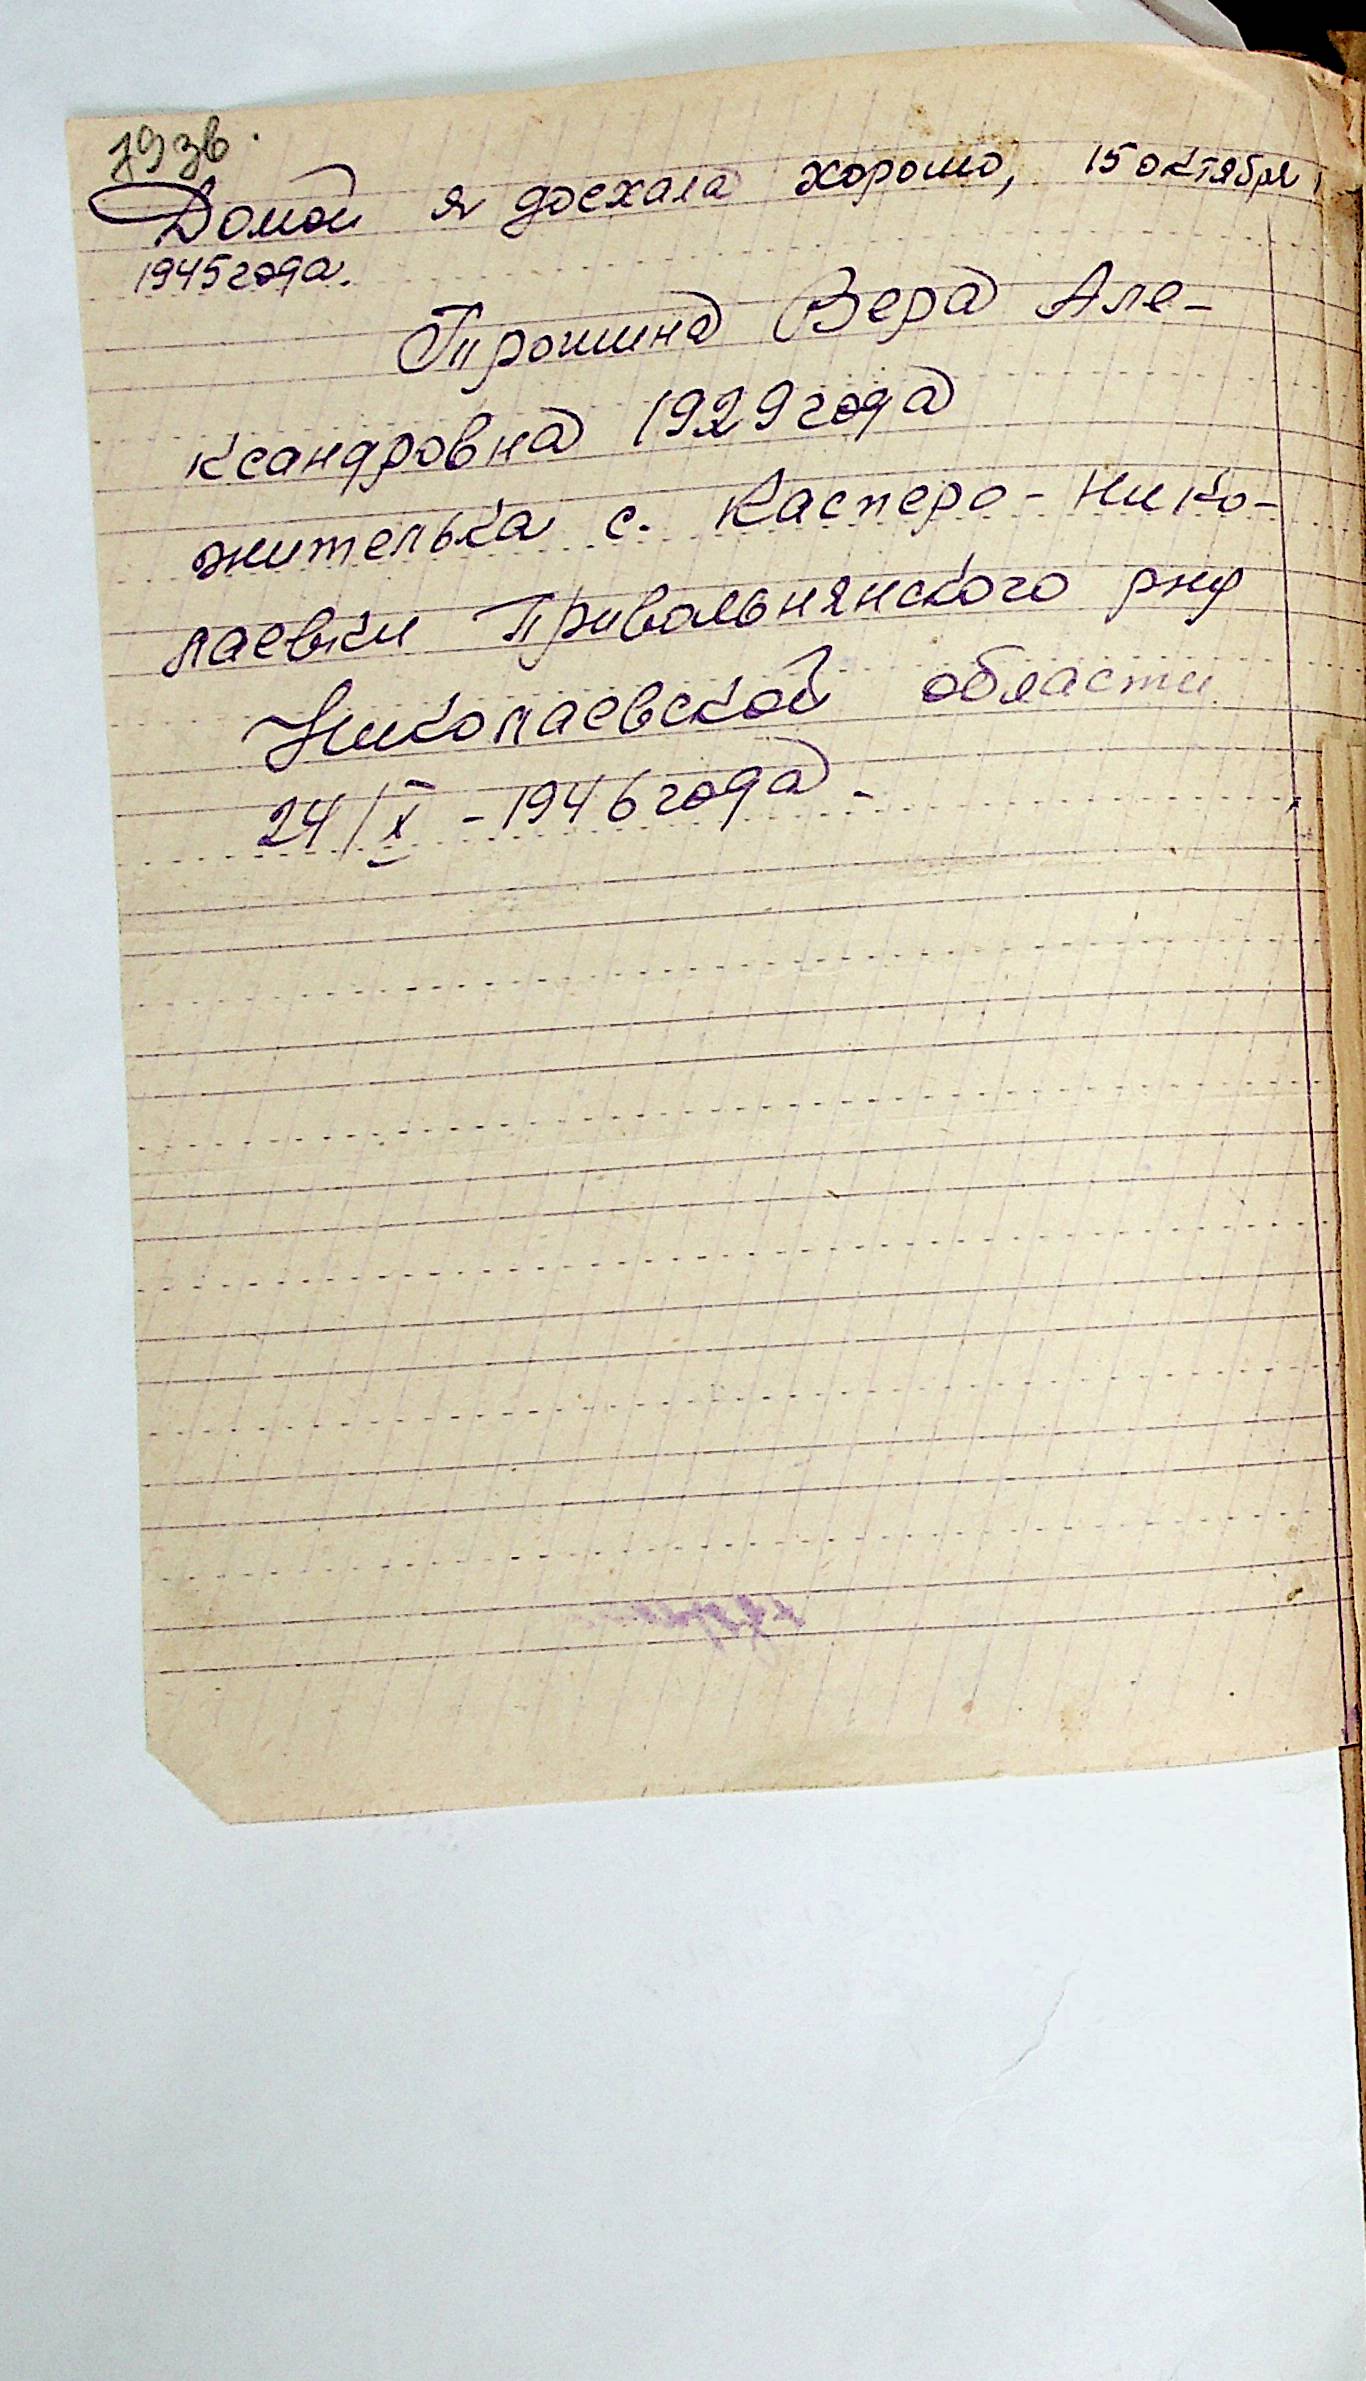 79 зв.
Домой я доехала хорошо, 15 октября
1945 года.
Трошина Вера Але-
ксандровна 1929 года
жителька с. Касперо-Нико-
лаевки Привольнянского
Николаевской области
24/X - 1946 года.